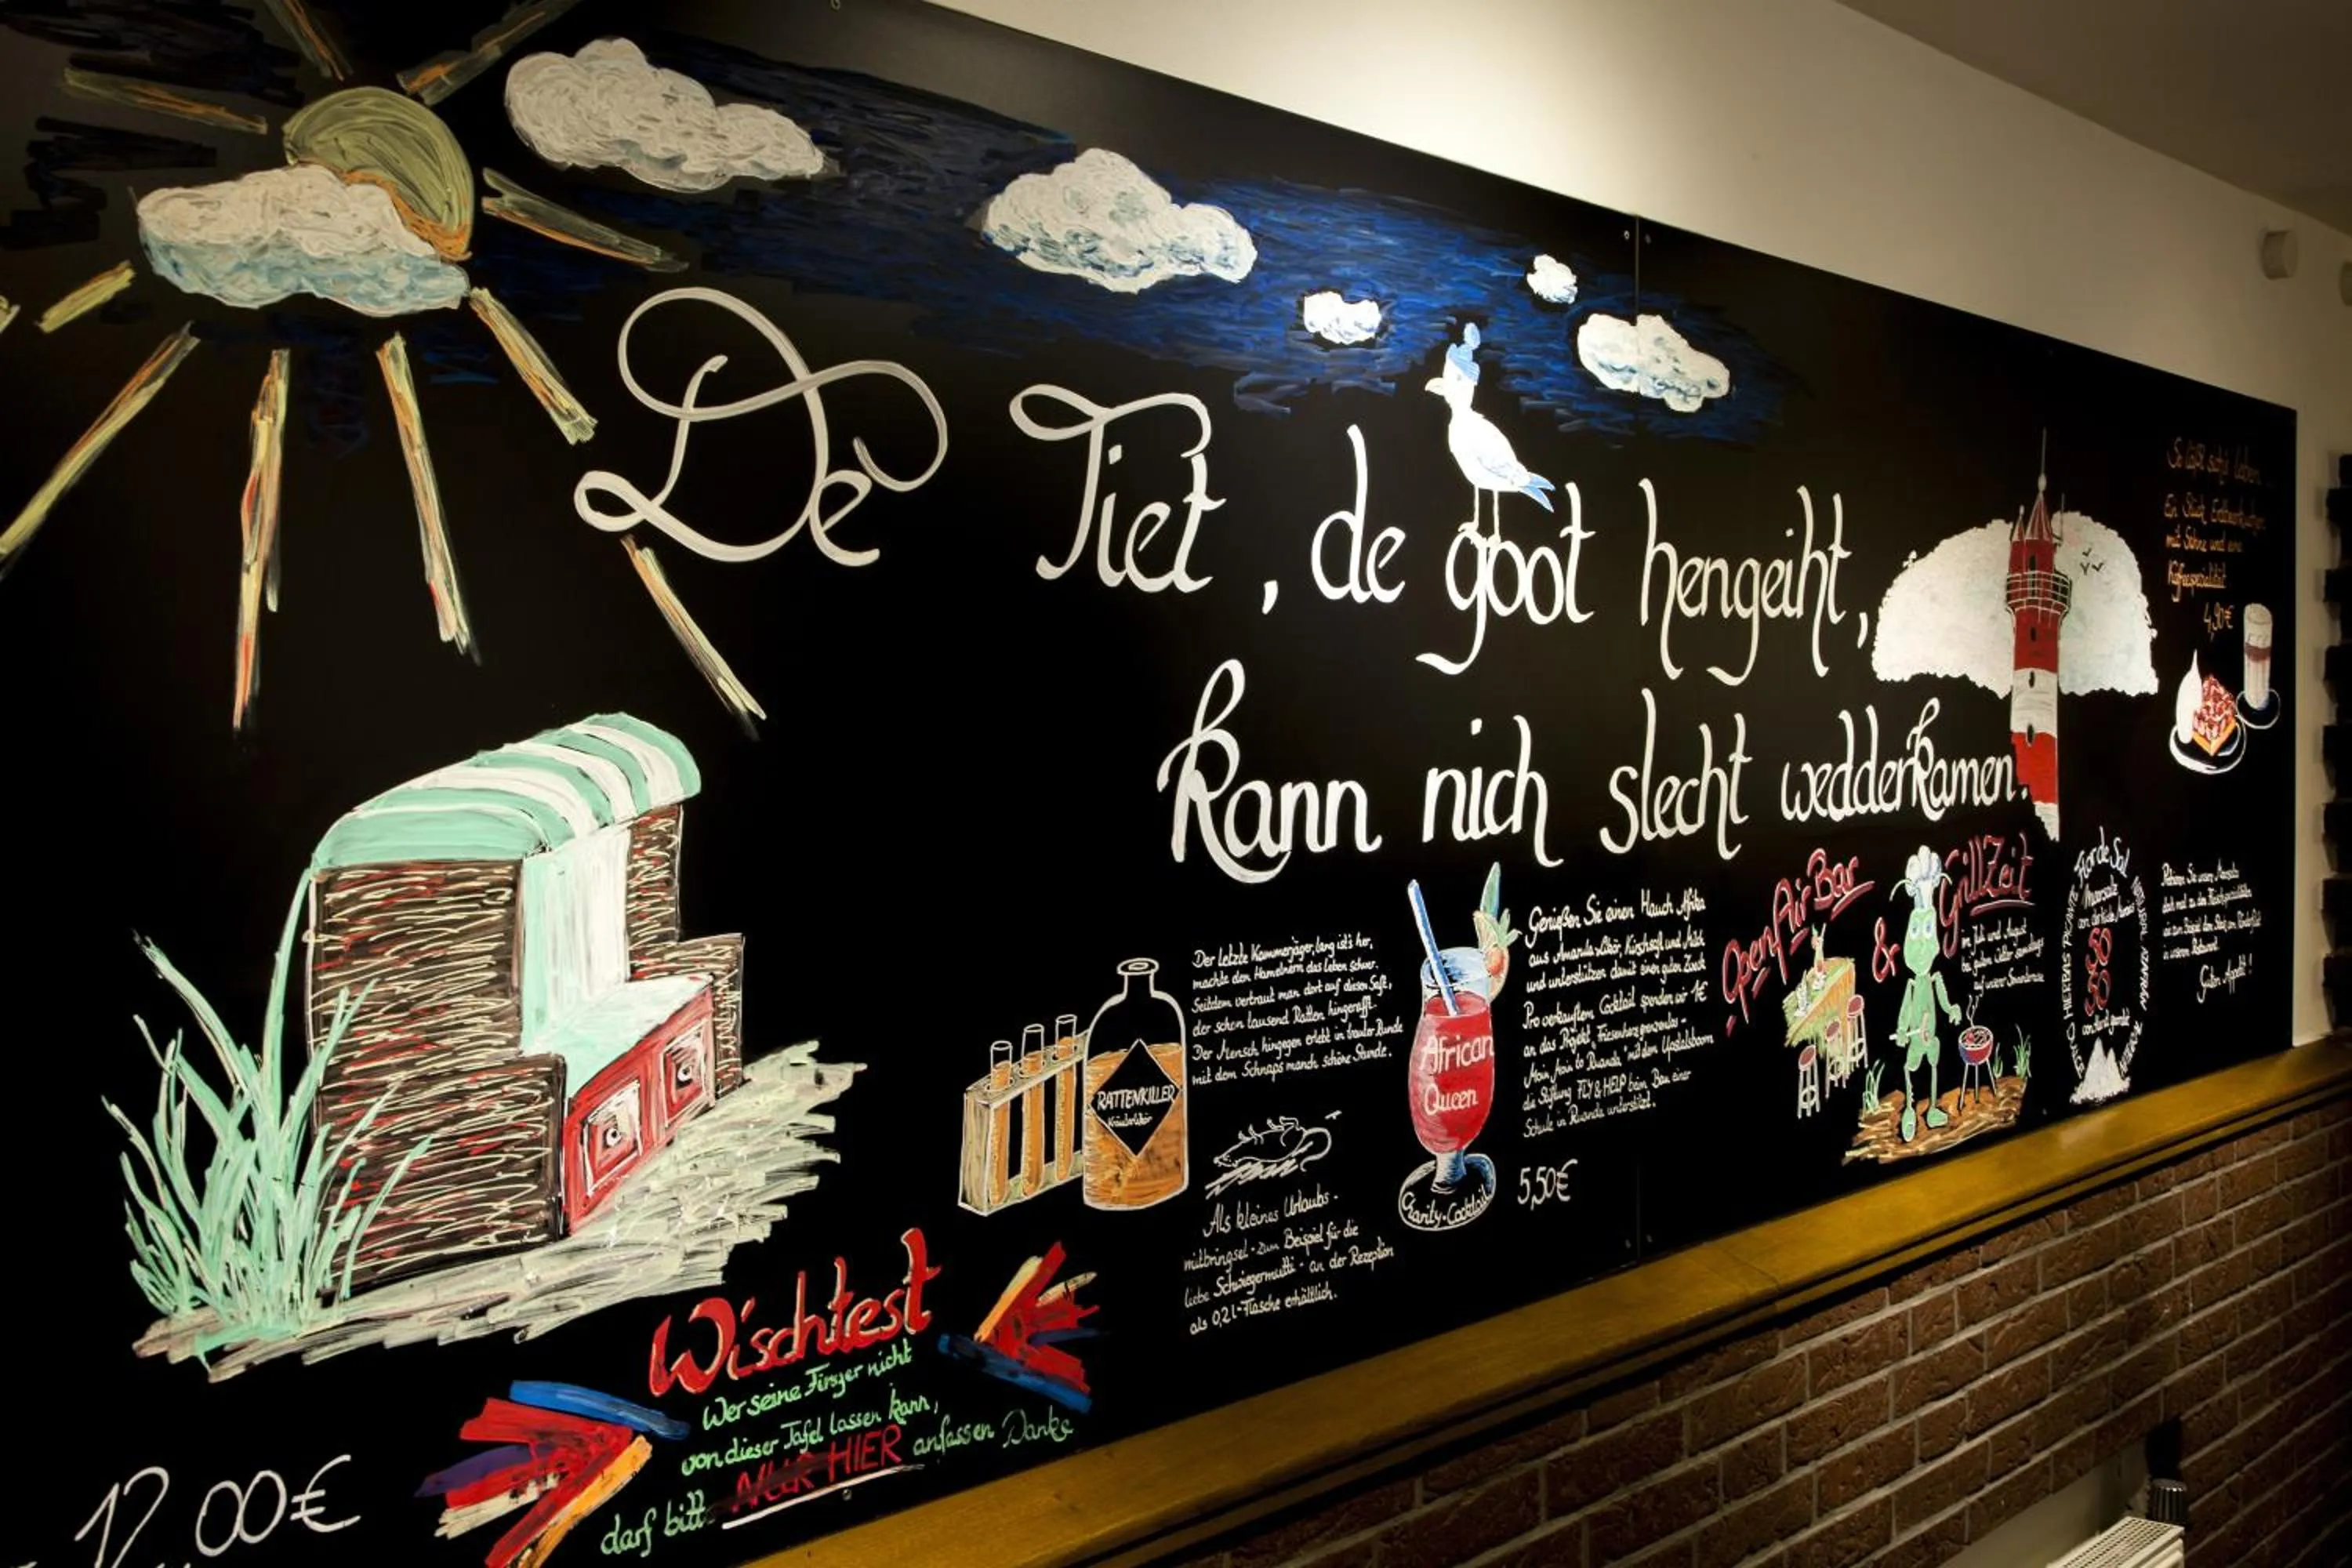 De Tiet, de goot hengeiht,
kann nich slecht wedderkamen.
So läßt sich's leben
Ein Stück Erdbeerkuchen
mit Sahne und eine
Kaffeespezialität
4,90€
Der letzte Kammerjäger, lang ist's her,
machte den Hamelnern das Leben schwer.
Seitdem vertraut man dort auf diesen Saft,
der schon tausend Ratten hingerafft.
Der Mensch hingegen erlebt in trauter Runde
mit dem Schnaps manch schöne Stunde.
RATTENKILLER
Kräuterlikör
Als kleines Urlaubs-
mitbringsel - zum Beispiel für die
liebe Schwiegermutti - an der Rezeption
als 0,2l-Flasche erhältlich.
African
Queen
Charity-Cocktail
Genießen Sie einen Hauch Afrika
aus Amarula Likör, Kirschsaft und Milch
und unterstützen damit einen guten Zweck
Pro verkauftem Cocktail spenden wir 1€
an das Projekt "Friesenherz grenzenlos -
Moin Moin to Ruanda" mit dem Upstalsboom
die Stiftung FLY & HELP beim Bau einer
Schule in Ruanda unterstützt.
5,50€
Open Air Bar
& GrillZeit
im Juli und August
bei gutem Wetter
auf unserer Sonnenterrasse
Flor de Sal
Meersalz
Guten Appetit!
Wischtest
Wer seine Finger nicht
von dieser Tafel lassen kann,
darf bitte NUR HIER anfassen Danke
12,00€